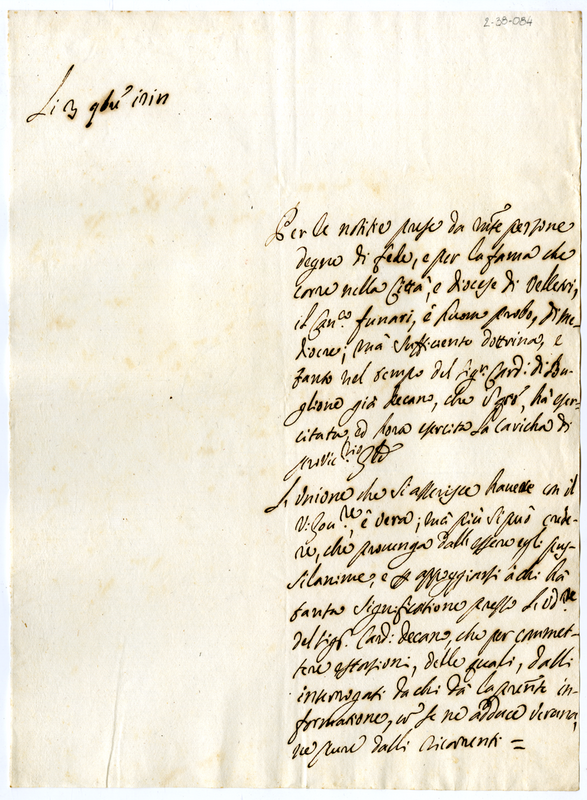 2-38-084
Li 3 9bre
Per le notitie prese da molte persone
degne di fede, e per la fama che
corre nella Città, e diocese di Velletri,
il Can.co funari, è huomo probo, di me-
diocre, mà sufficiente dottrina, e
tanto nel tempo del Sigr. Card: di Bu-
glione già decano, che hà eser-
citata, ed hora esercita la caricha di
provic.rio
L'unione che si asserisce havere con il
è vera; mà più si può crede-
re, che provenga dall'essere egli pus-
silanime, e p appoggiarsi à chi hà
tanta significatione presso li
del Sigr. Card: decano, che per commet-
tere estorsioni, delle quali, dalli
interrogati da chi dà la prente in-
formatione, nō se ne adduce veruna,
ne pure dalli ricorrenti =